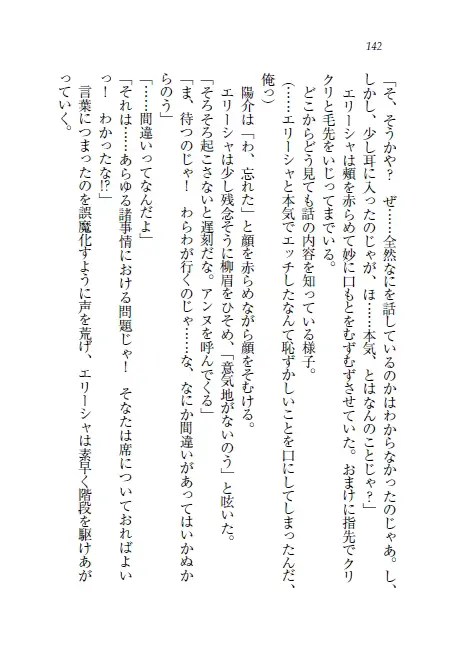 142
「そ、そうかや？　ぜ……全然なにを話しているのかはわからなかったのじゃあ。し、
しかし、少し耳に入ったのじゃが、ほ……本気、とはなんのことじゃ？」
エリーシャは頰を赤らめて妙に口もとをむずむずさせていた。おまけに指先でクリ
クリと毛先をいじってまでいる。
どこからどう見ても話の内容を知っている様子。
（……エリーシャと本気でエッチしたなんて恥ずかしいことを口にしてしまったんだ、
俺っ）
陽介は「わ、忘れた」と顔を赤らめながら顔をそむける。
エリーシャは少し残念そうに柳眉をひそめ、「意気地がないのう」と呟いた。
「そろそろ起こさないと遅刻だな。アンヌを呼んでくる」
「ま、待つのじゃ！　わらわが行くのじゃ……な、なにか間違いがあってはいかぬか
らのう」
「……間違いってなんだよ」
「それは……あらゆる諸事情における問題じゃ！　そなたは席についておればよい
っ！　わかったな!?」
言葉につまったのを誤魔化すように声を荒げ、エリーシャは素早く階段を駆けあが
っていく。